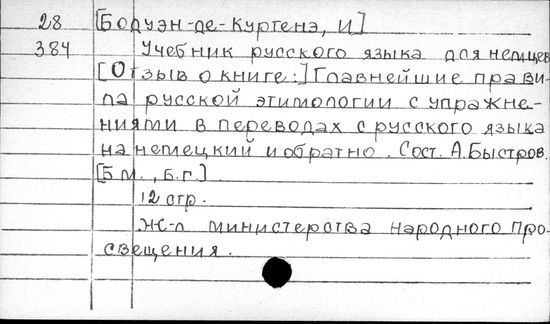 28 [Бодуэн-де-Куртенэ, И]
384 Учебник русского языка для немцев
[Отзыв о книге:] Главнейшие прави-
ла русской этимологии с упражне-
ниями в переводах с русского языка
на немецкий и обратно. Сост. А. Быстров.
[Б.м., б.г.]
12 стр.
Ж-л министерства народного про-
свещения.